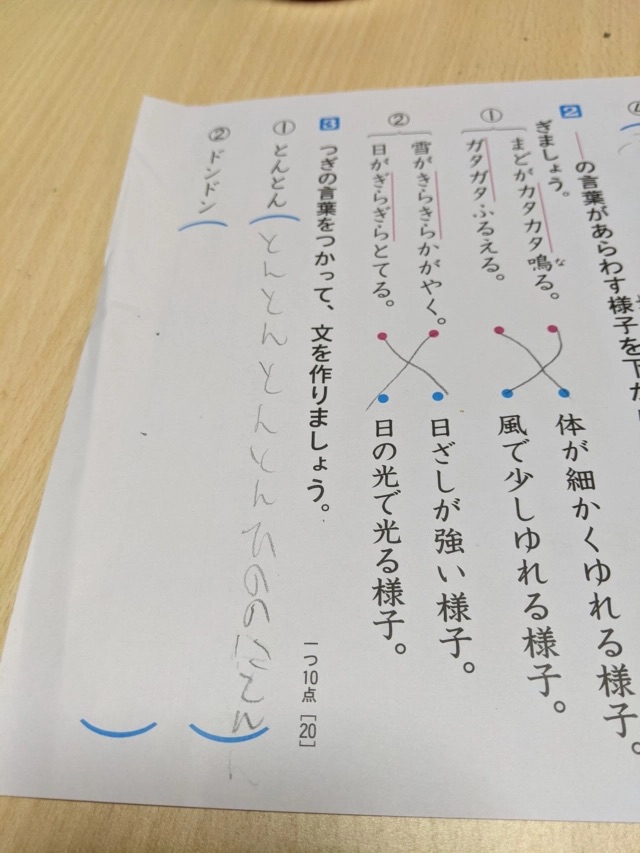 2 ―の言葉があらわす様子を下か
ぎましょう。
① まどがカタカタ鳴る。
な
ガタガタふるえる。
体が細かくゆれる様子。
風で少しゆれる様子。
② 雪がきらきらかがやく。
日がぎらぎらとてる。
日ざしが強い様子。
日の光で光る様子。
3 つぎの言葉をつかって、文を作りましょう。
一つ10点［20］
① とんとん
とんとんとんとんひののにとん
② ドンドン